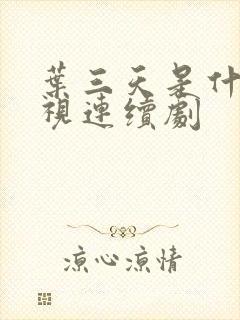 葉三天是什
視連續劇
涼心涼情